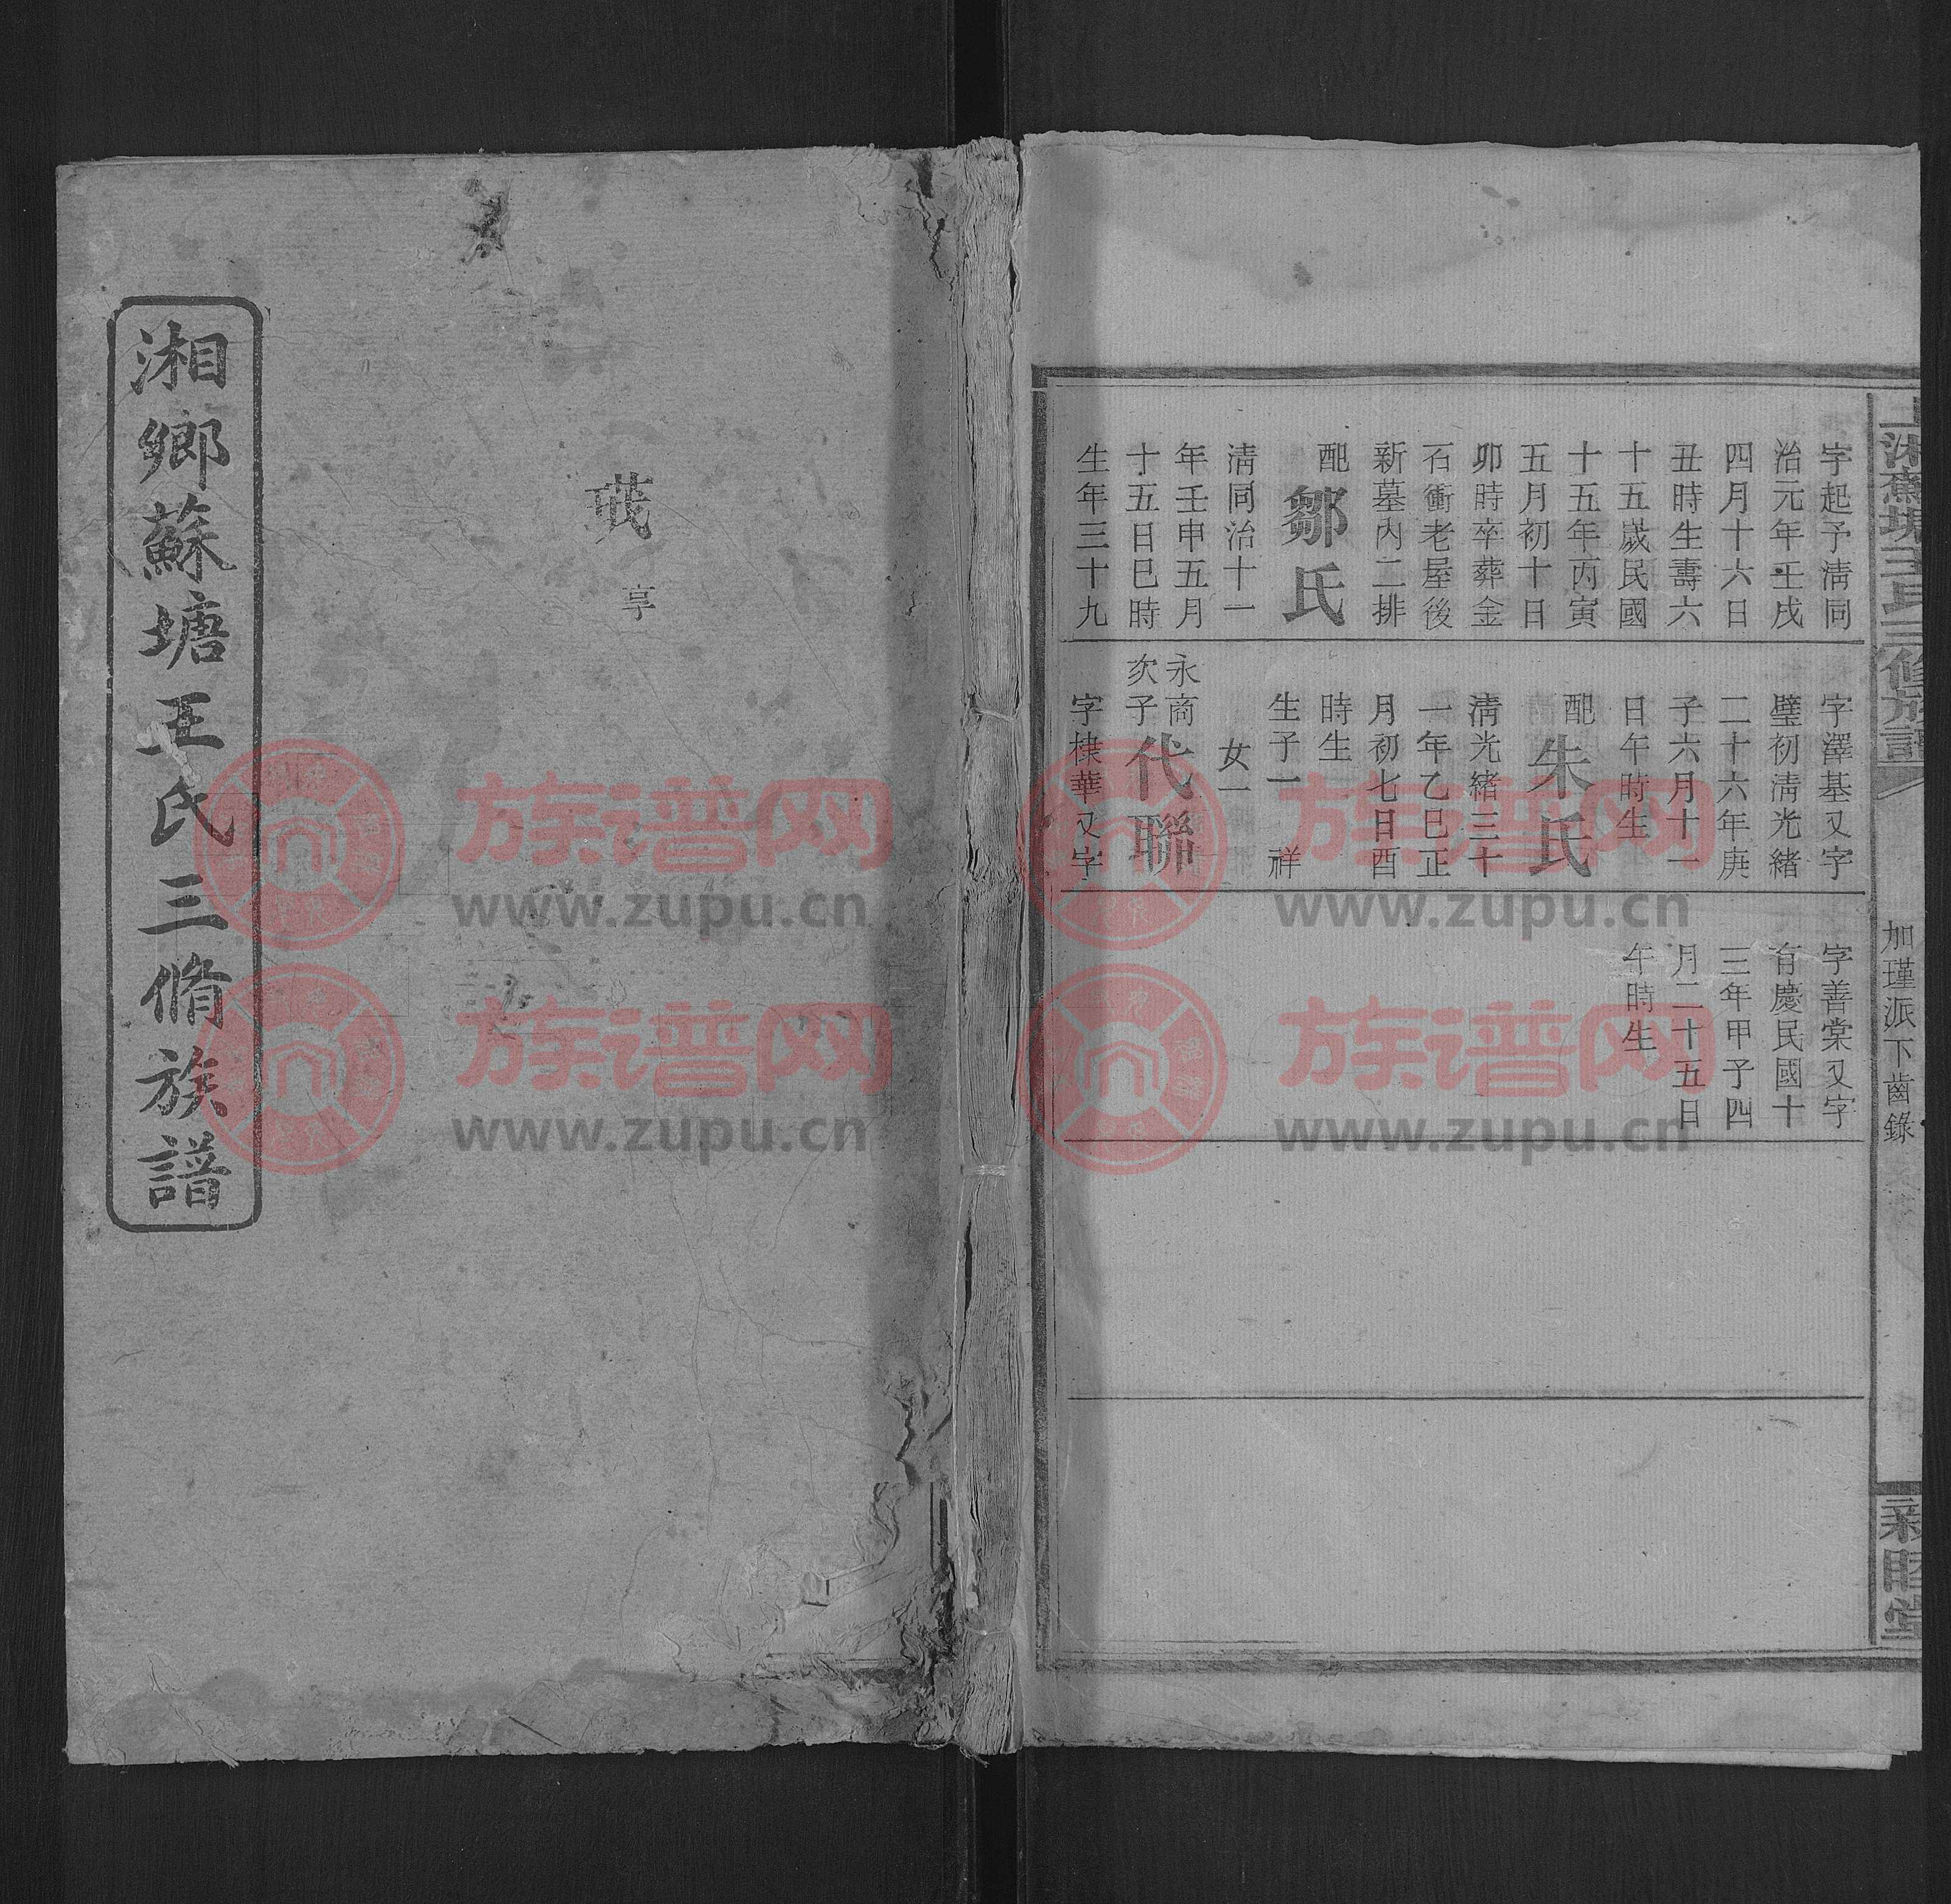 上湘蘇塘王氏三修族譜
加瑾派下齒錄
親睦堂
字起予清同
治元年壬戌
四月十六日
丑時生壽六
十五歲民國
十五年丙寅
五月初十日
卯時卒葬金
石衝老屋後
新墓內二排
配鄒氏
清同治十一
年壬申五月
十五日巳時
生年三十九
字澤基又字
璧初清光緒
二十六年庚
子六月十一
日午時生
配朱氏
清光緒三十
一年乙巳正
月初七日酉
時生
生子一 祥
女一
永商
次子代聯
字棣華又字
字善棠又字
有慶民國十
三年甲子四
月二十五日
午時生
享
湘鄉蘇塘王氏三脩族譜
族谱网
www.zupu.cn
族谱网
www.zupu.cn
族谱网
www.zupu.cn
族谱网
www.zupu.cn